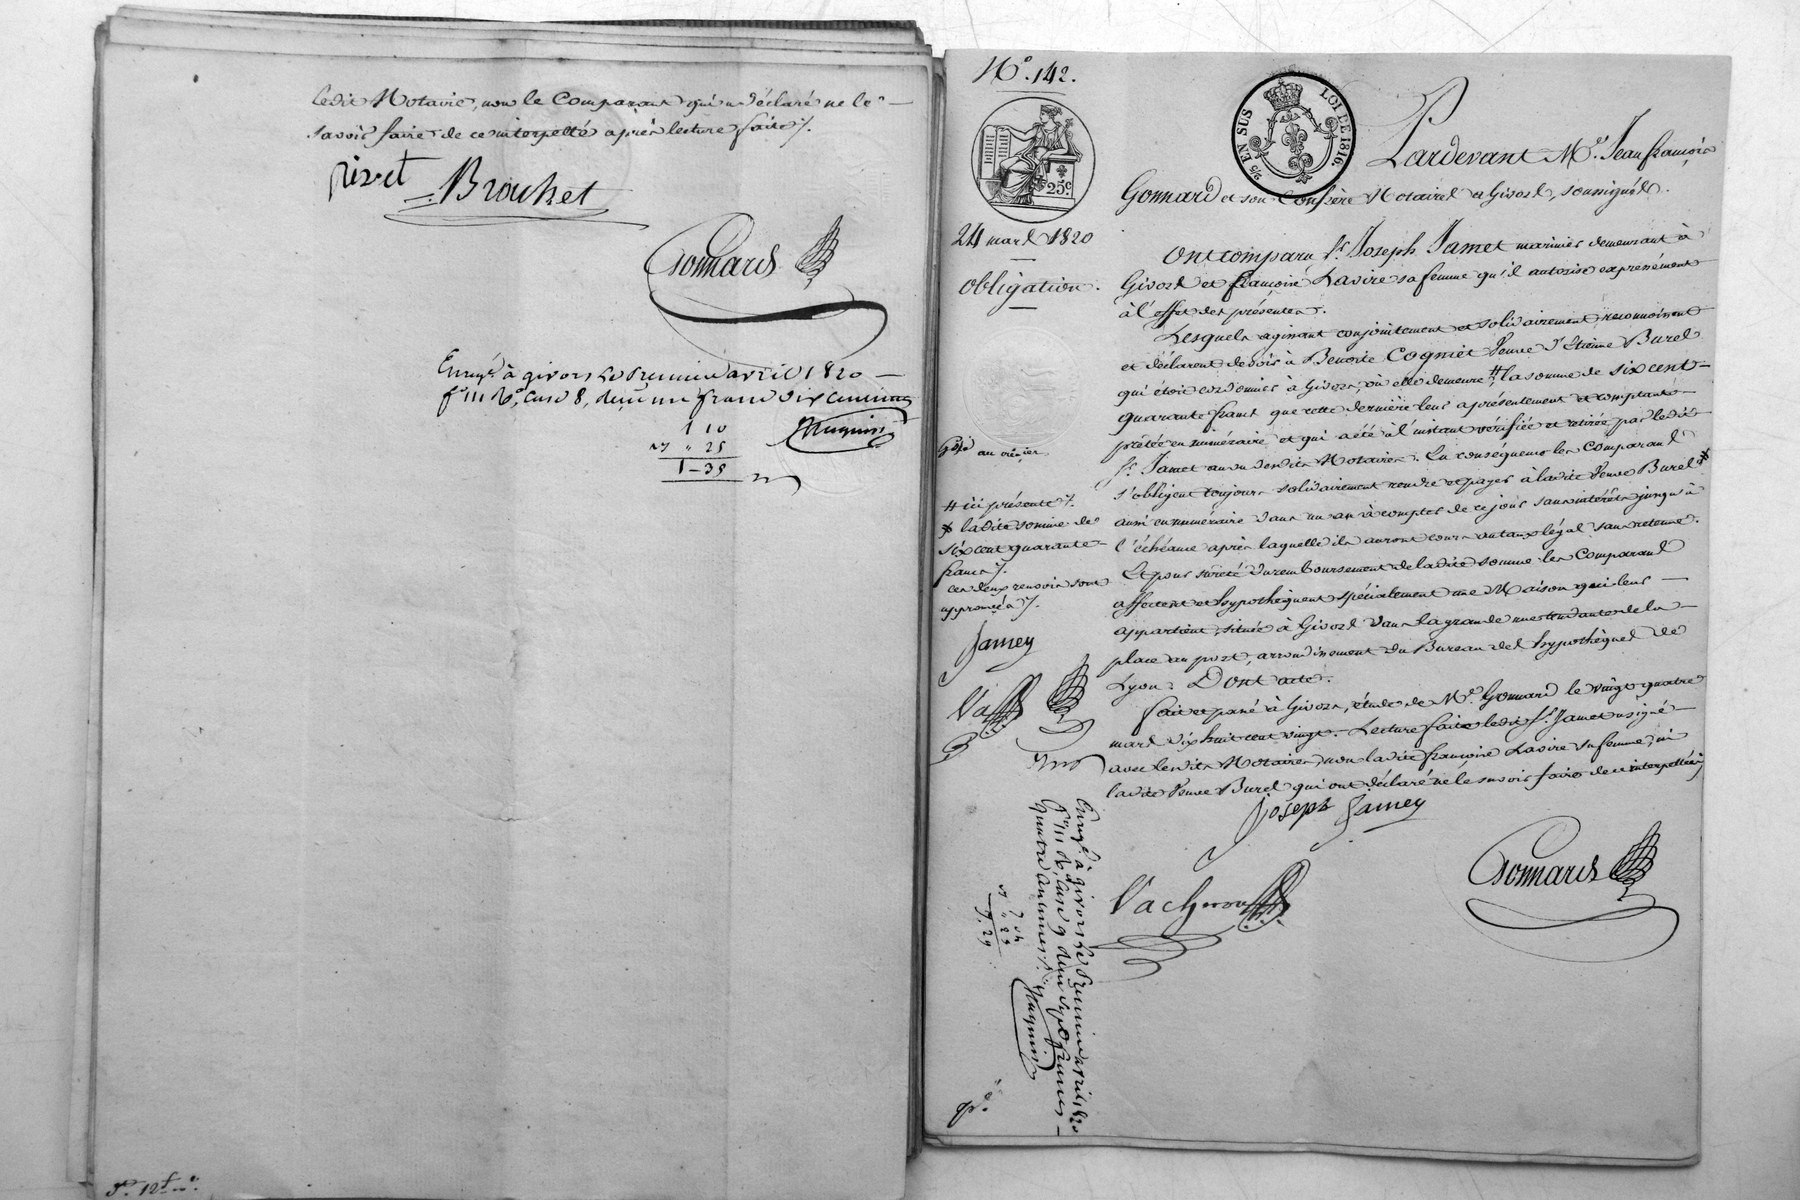 ledit Notaire, non le Comparant qui a déclaré ne le
savoir faire de ce interpellé après lecture faite ./.
rivet
Brouhet
Gonnard
Enregé à givors le premier avril 1820
fo 111 Ro, Case 8, reçu un franc dix centimes
1 10
" 25
1 - 35
Huguin
12 f
No. 142.
25 c
25 EN SUS
LOI DE 1816.
24 mars 1820
obligation.
Pardevant Me. Jean françois
Gonnard et son Confrère Notaires à Givors, soussignés.
Ont comparu Sr. Joseph Jamet marinier demeurant à
Givors et françoise Lavire sa femme qu'il autorise expressément
à l'effet des présentes.
Lesquels agissant conjointement et solidairement, reconnoissent
et déclarent devoir à Benoite Cogniet Veuve d'Etienne Burel
qui étoit cordonnier à Givors, où elle demeure, # la somme de six cent
quarante francs que cette dernière leur a présentement et comptant
prêtée en numéraire et qui a été à l'instant vérifiée et retirée par ledit
Sr. Jamet au vu desdits Notaires. En conséquence les Comparans
s'obligent toujours solidairement rendre et payer à ladite Veuve Burel
aussi en numéraire dans un an à compter de ce jour sans intérêts jusqu'à
l'échéance après laquelle ils auront cours au taux légal sans retenue.
Et pour sûreté du remboursement de ladite somme les Comparans
affectent et hypothèquent spécialement une Maison qui leur
appartient, située à Givors dans la grande rue tendante de la
place au port, arrondissement du Bureau des hypothèques de
Lyon. Dont acte.
fait et passé à Givors, étude de Me Gonnard le vingt quatre
mars dix huit cent vingt. Lecture faite ledit Sr. Jamet a signé
avec lesdits Notaires, non ladite françoise Lavire sa femme, ni
ladite Veuve Burel qui ont déclaré ne le savoir faire de ce interpellées
joseph Jamey
Vacheron
Gonnard
au créancier
# ici présente ./.
ladite somme de
six cent quarante
francs ./.
ces deux renvois sont
approuvés ./.
Jamey
Va
Enregé à givors le premier avril 1820
fo 111 Ro, Case 9 reçu sept francs
quatre centimes ./.
Huguin
7 04
" 25
7. 29